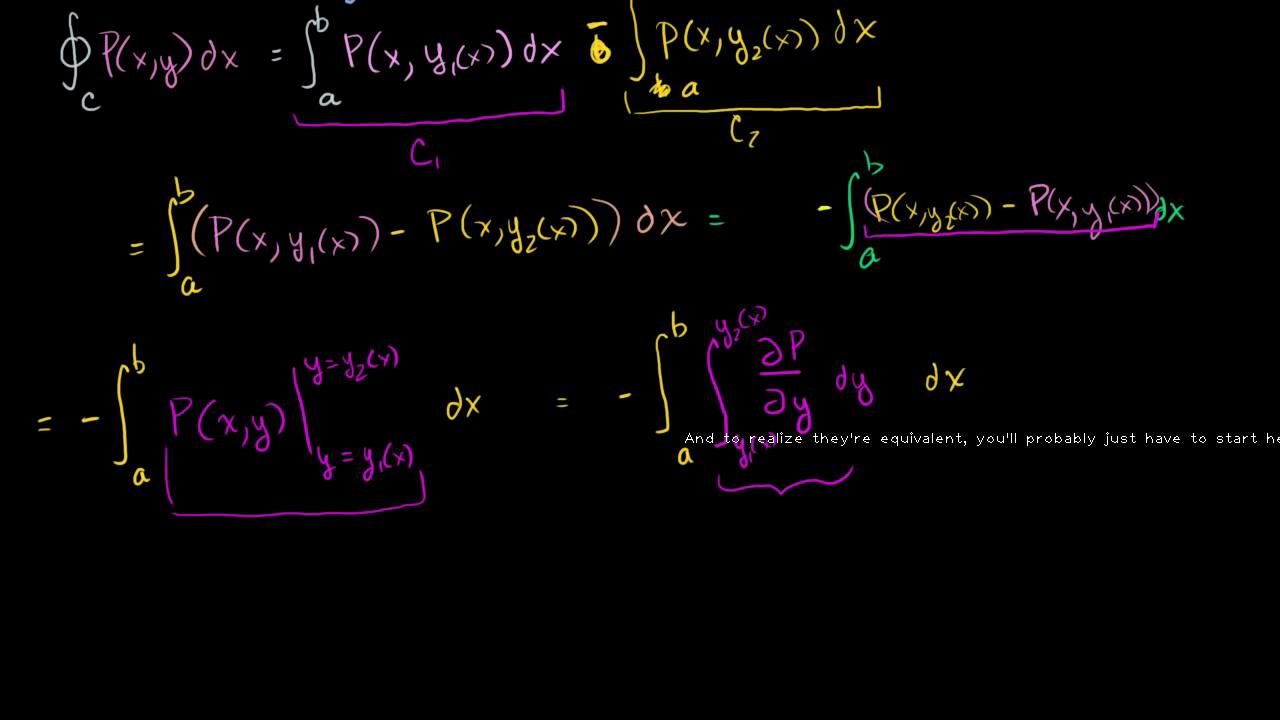 ∮_C P(x,y)dx = ∫_a^b P(x, y₁(x))dx - ∫_a P(x,y₂(x)) dx
C₁ C₂
= ∫_a^b (P(x, y₁(x)) - P(x,y₂(x))) dx = - ∫_a^b (P(x,y₂(x)) - P(x,y₁(x)))dx
= - ∫_a^b P(x,y) |_{y = y₁(x)}^{y = y₂(x)} dx = - ∫_a^b ∫_{y₁(x)}^{y₂(x)} ∂P/∂y dy dx
And to realize they're equivalent, you'll probably just have to start he